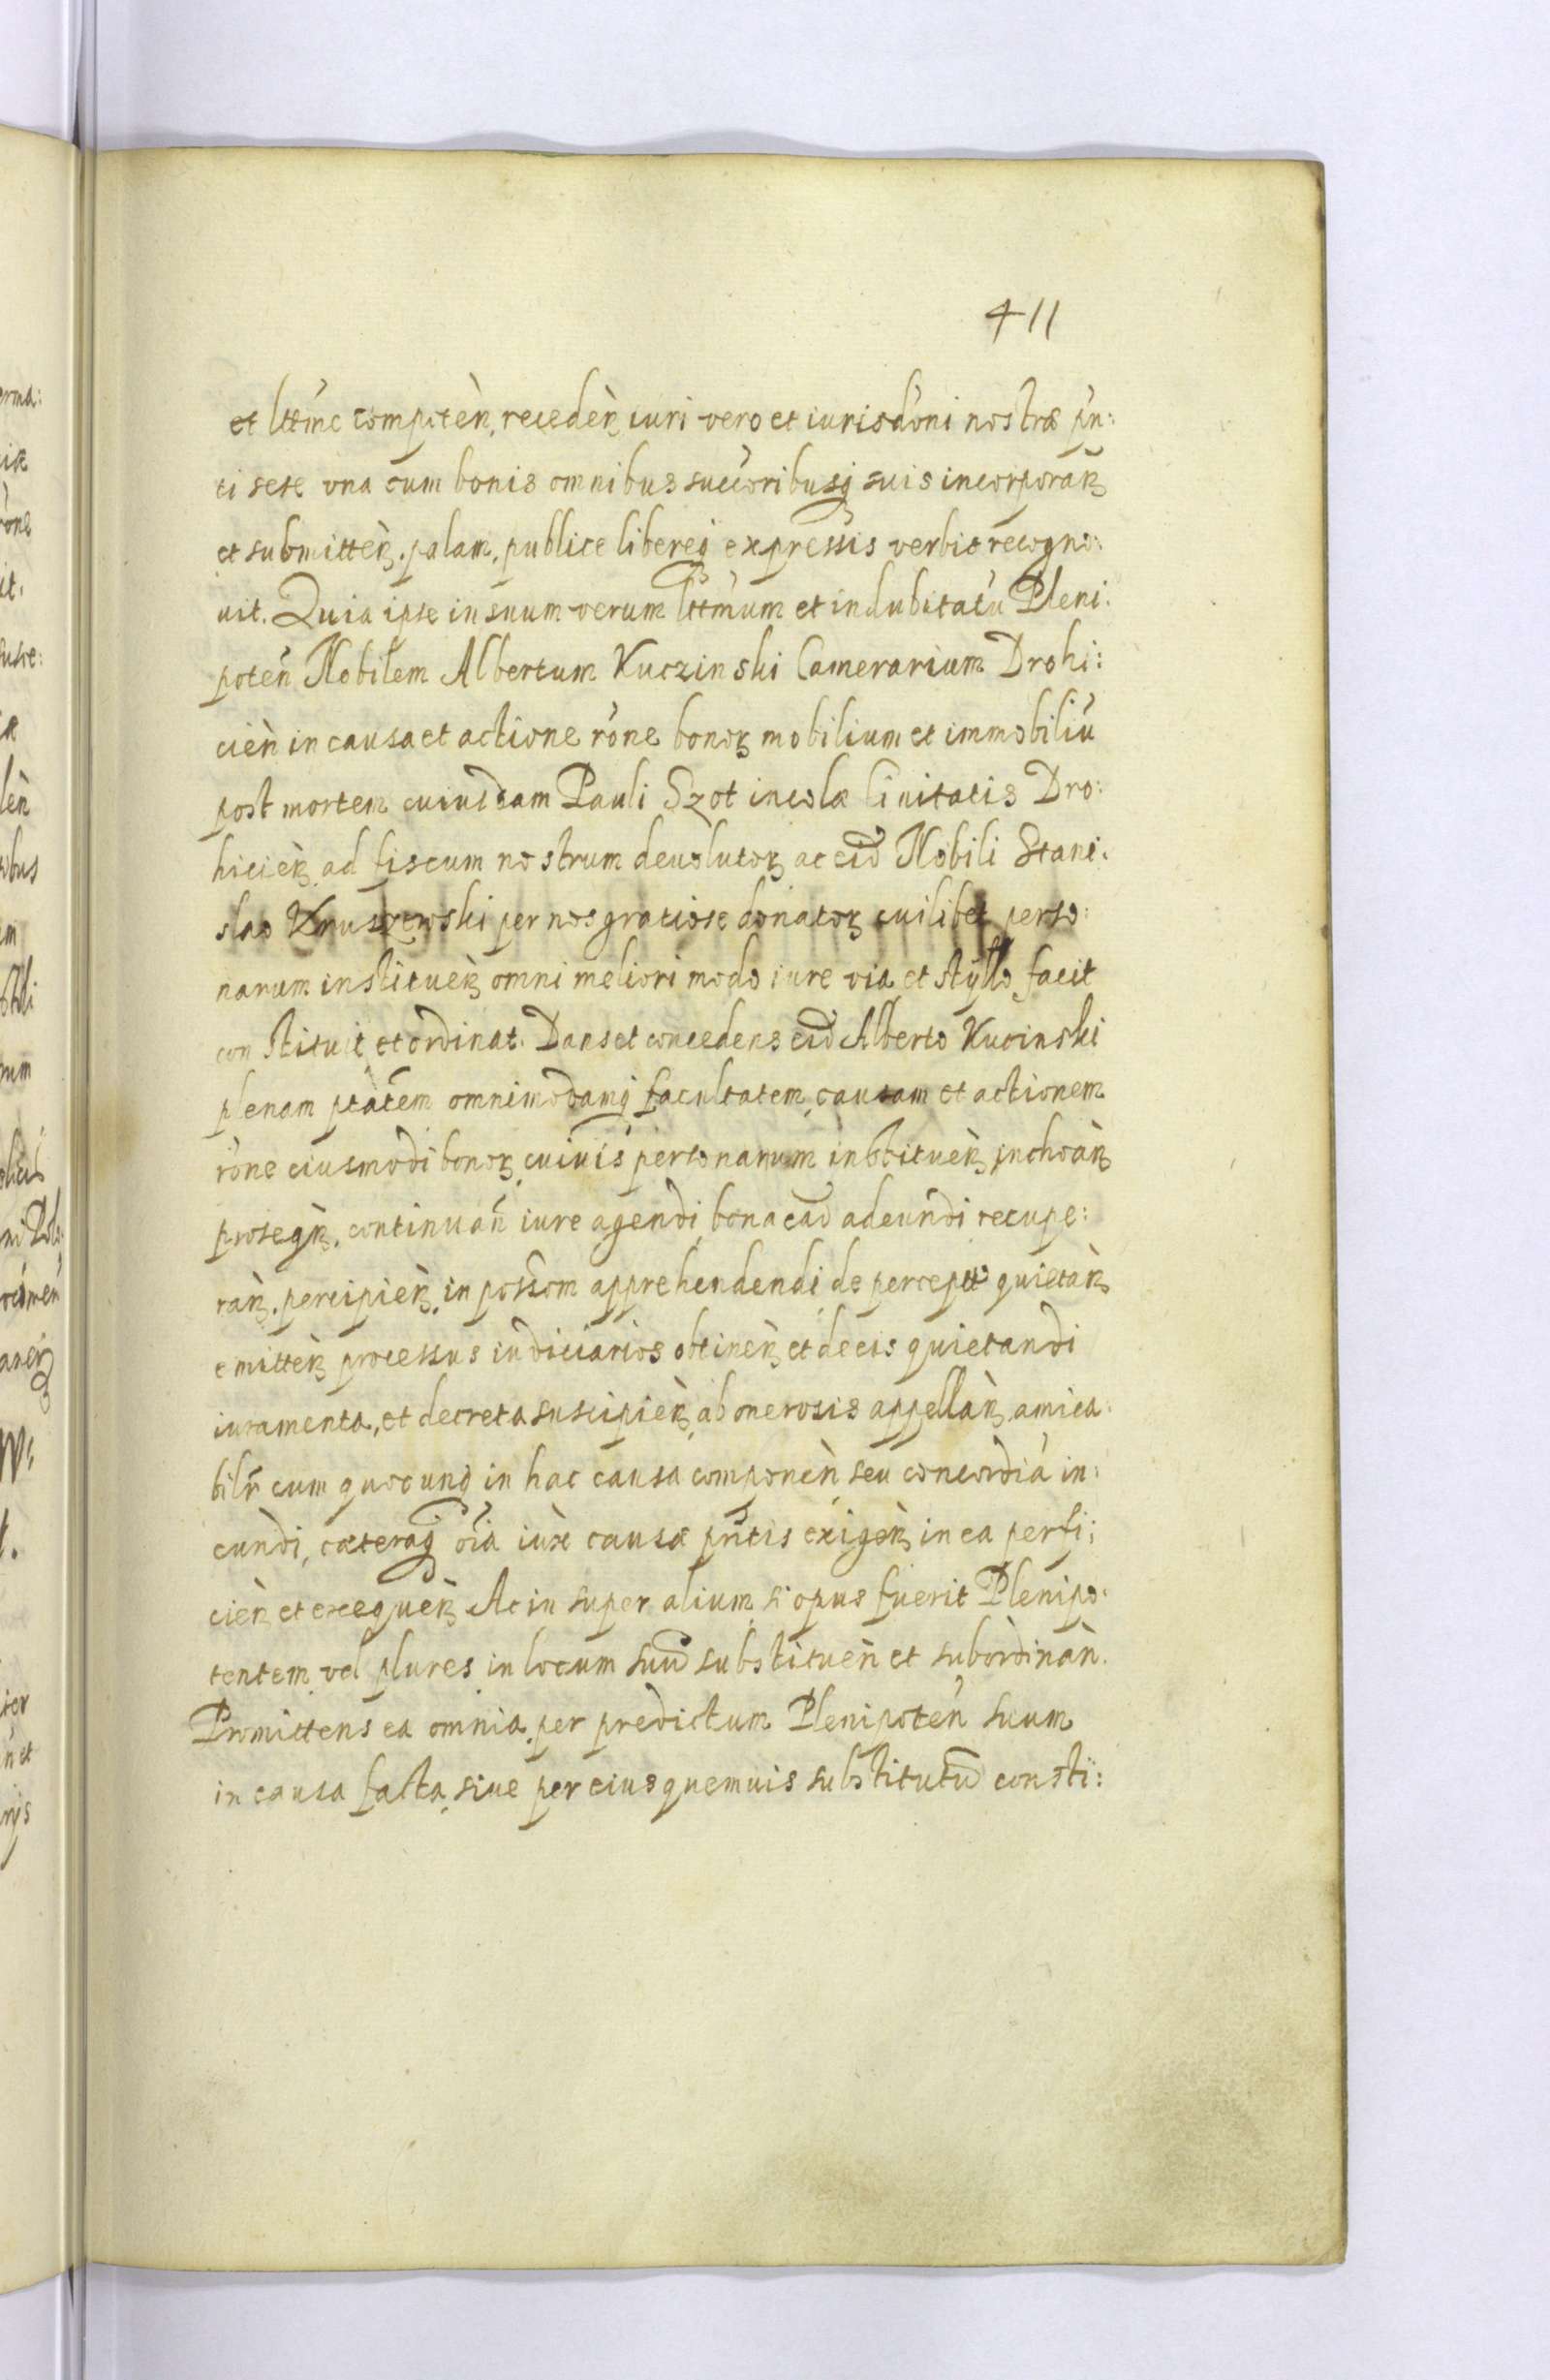 411
et lttīme competeǹ, recedeǹ, iuri vero et iurisdōni nostræ pn̄:
ti sese vna cum bonis omnibus succōribusq̢ suis incorporaꝝ
et submitteꝝ. palam, publice libereq̢ expressis verbis recogno:
uit. Quia ipse in suum verum lttm̄um et indubitatū Pleni:
poten̄ Nobilem Albertum Kuczinski Camerarium Drohi:
cien̄ in causa et actione rōne bonoꝝ mobilium et immobiliū
post mortem cuiusdam Pauli Szot incolæ Ciuitatis Dro:
hicieꝝ ad fiscum nostrum deuolutoꝝ ac eid̄ Nobili Stani:
slao Kruszewski per nos gratiose donatoꝝ cuilibet perso:
narum institueꝝ omni meliori modo iure via et stylo facit
constituit et ordinat. Dans et concedens eid̄ Alberto Kucinski
plenam ptātem omnimodamq̢ facultatem, causam et actionem
rōne eiusmodi bonoꝝ, cuiuis personarum instituеꝝ, inchoaꝝ
proseqꝝ, continuan̄ iure agendi, bona ead̄ adeundi recupe:
raꝝ, percipieꝝ, in possōm apprehendendi, de percept̄ quietaꝝ
emitteꝝ processus iudiciarios obtineꝝ et de eis quietandi
iuramenta, et decreta suscipieꝝ, ab onerosis appellaꝝ, amica:
bilr̄ cum quocunq̢ in hac causa componen̄ seu concordiā in:
eundi, cæteraq̢ oīa iux̄ causæ pn̄tis exigeꝝ in ea perfi:
cieꝝ et exequeꝝ Ac in super alium, si opus fuerit Plenipo:
tentem vel plures in locum suū substituen̄ et subordinan̄.
Promittens ea omnia, per predictum Plenipoten̄ suum
in causa facta, siue per eius quemuis substitutū consti: